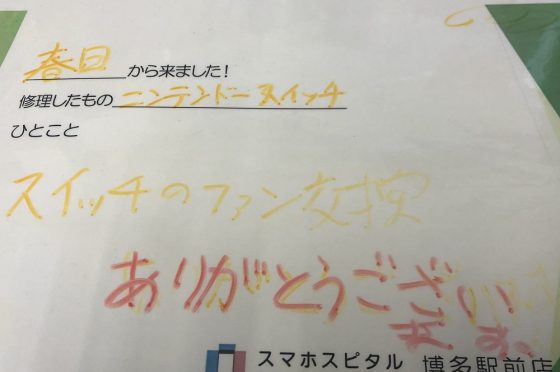 春日から来ました!
修理したもの ニンテンドースイッチ
ひとこと
スイッチのファン交換
ありがとうござい
ます。
スマホスピタル 博多駅前店